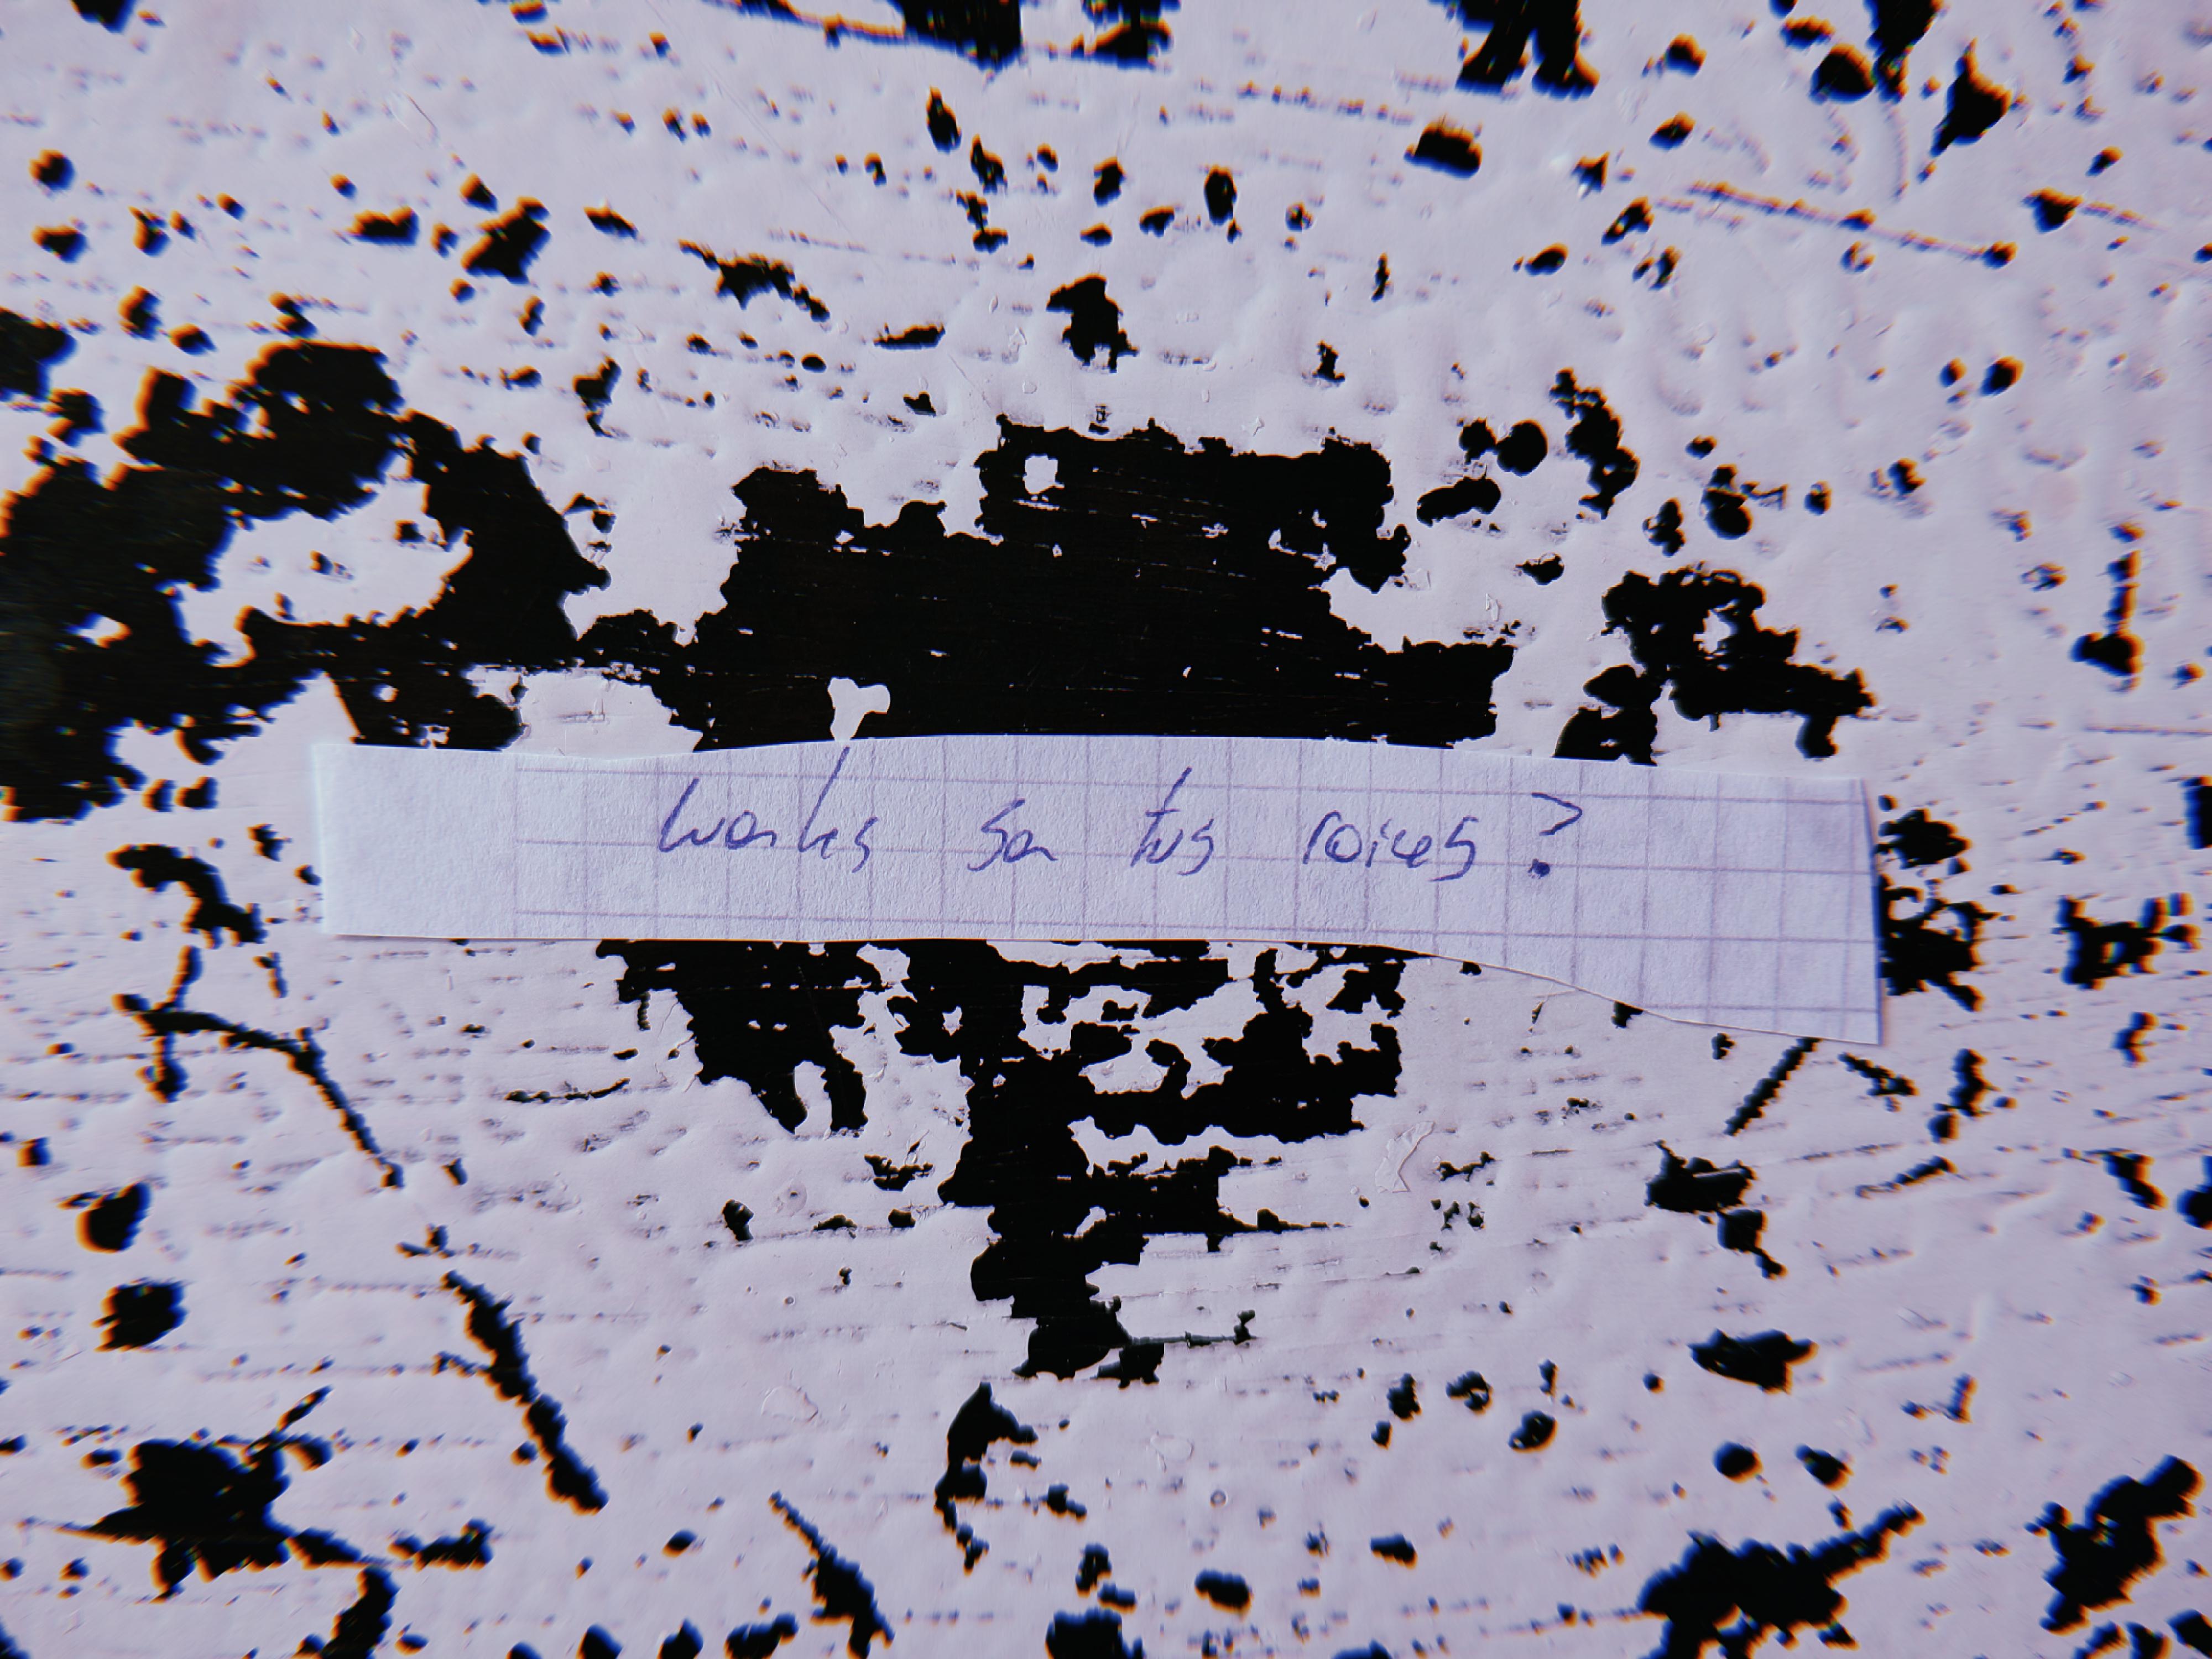 cuales son tus raices?